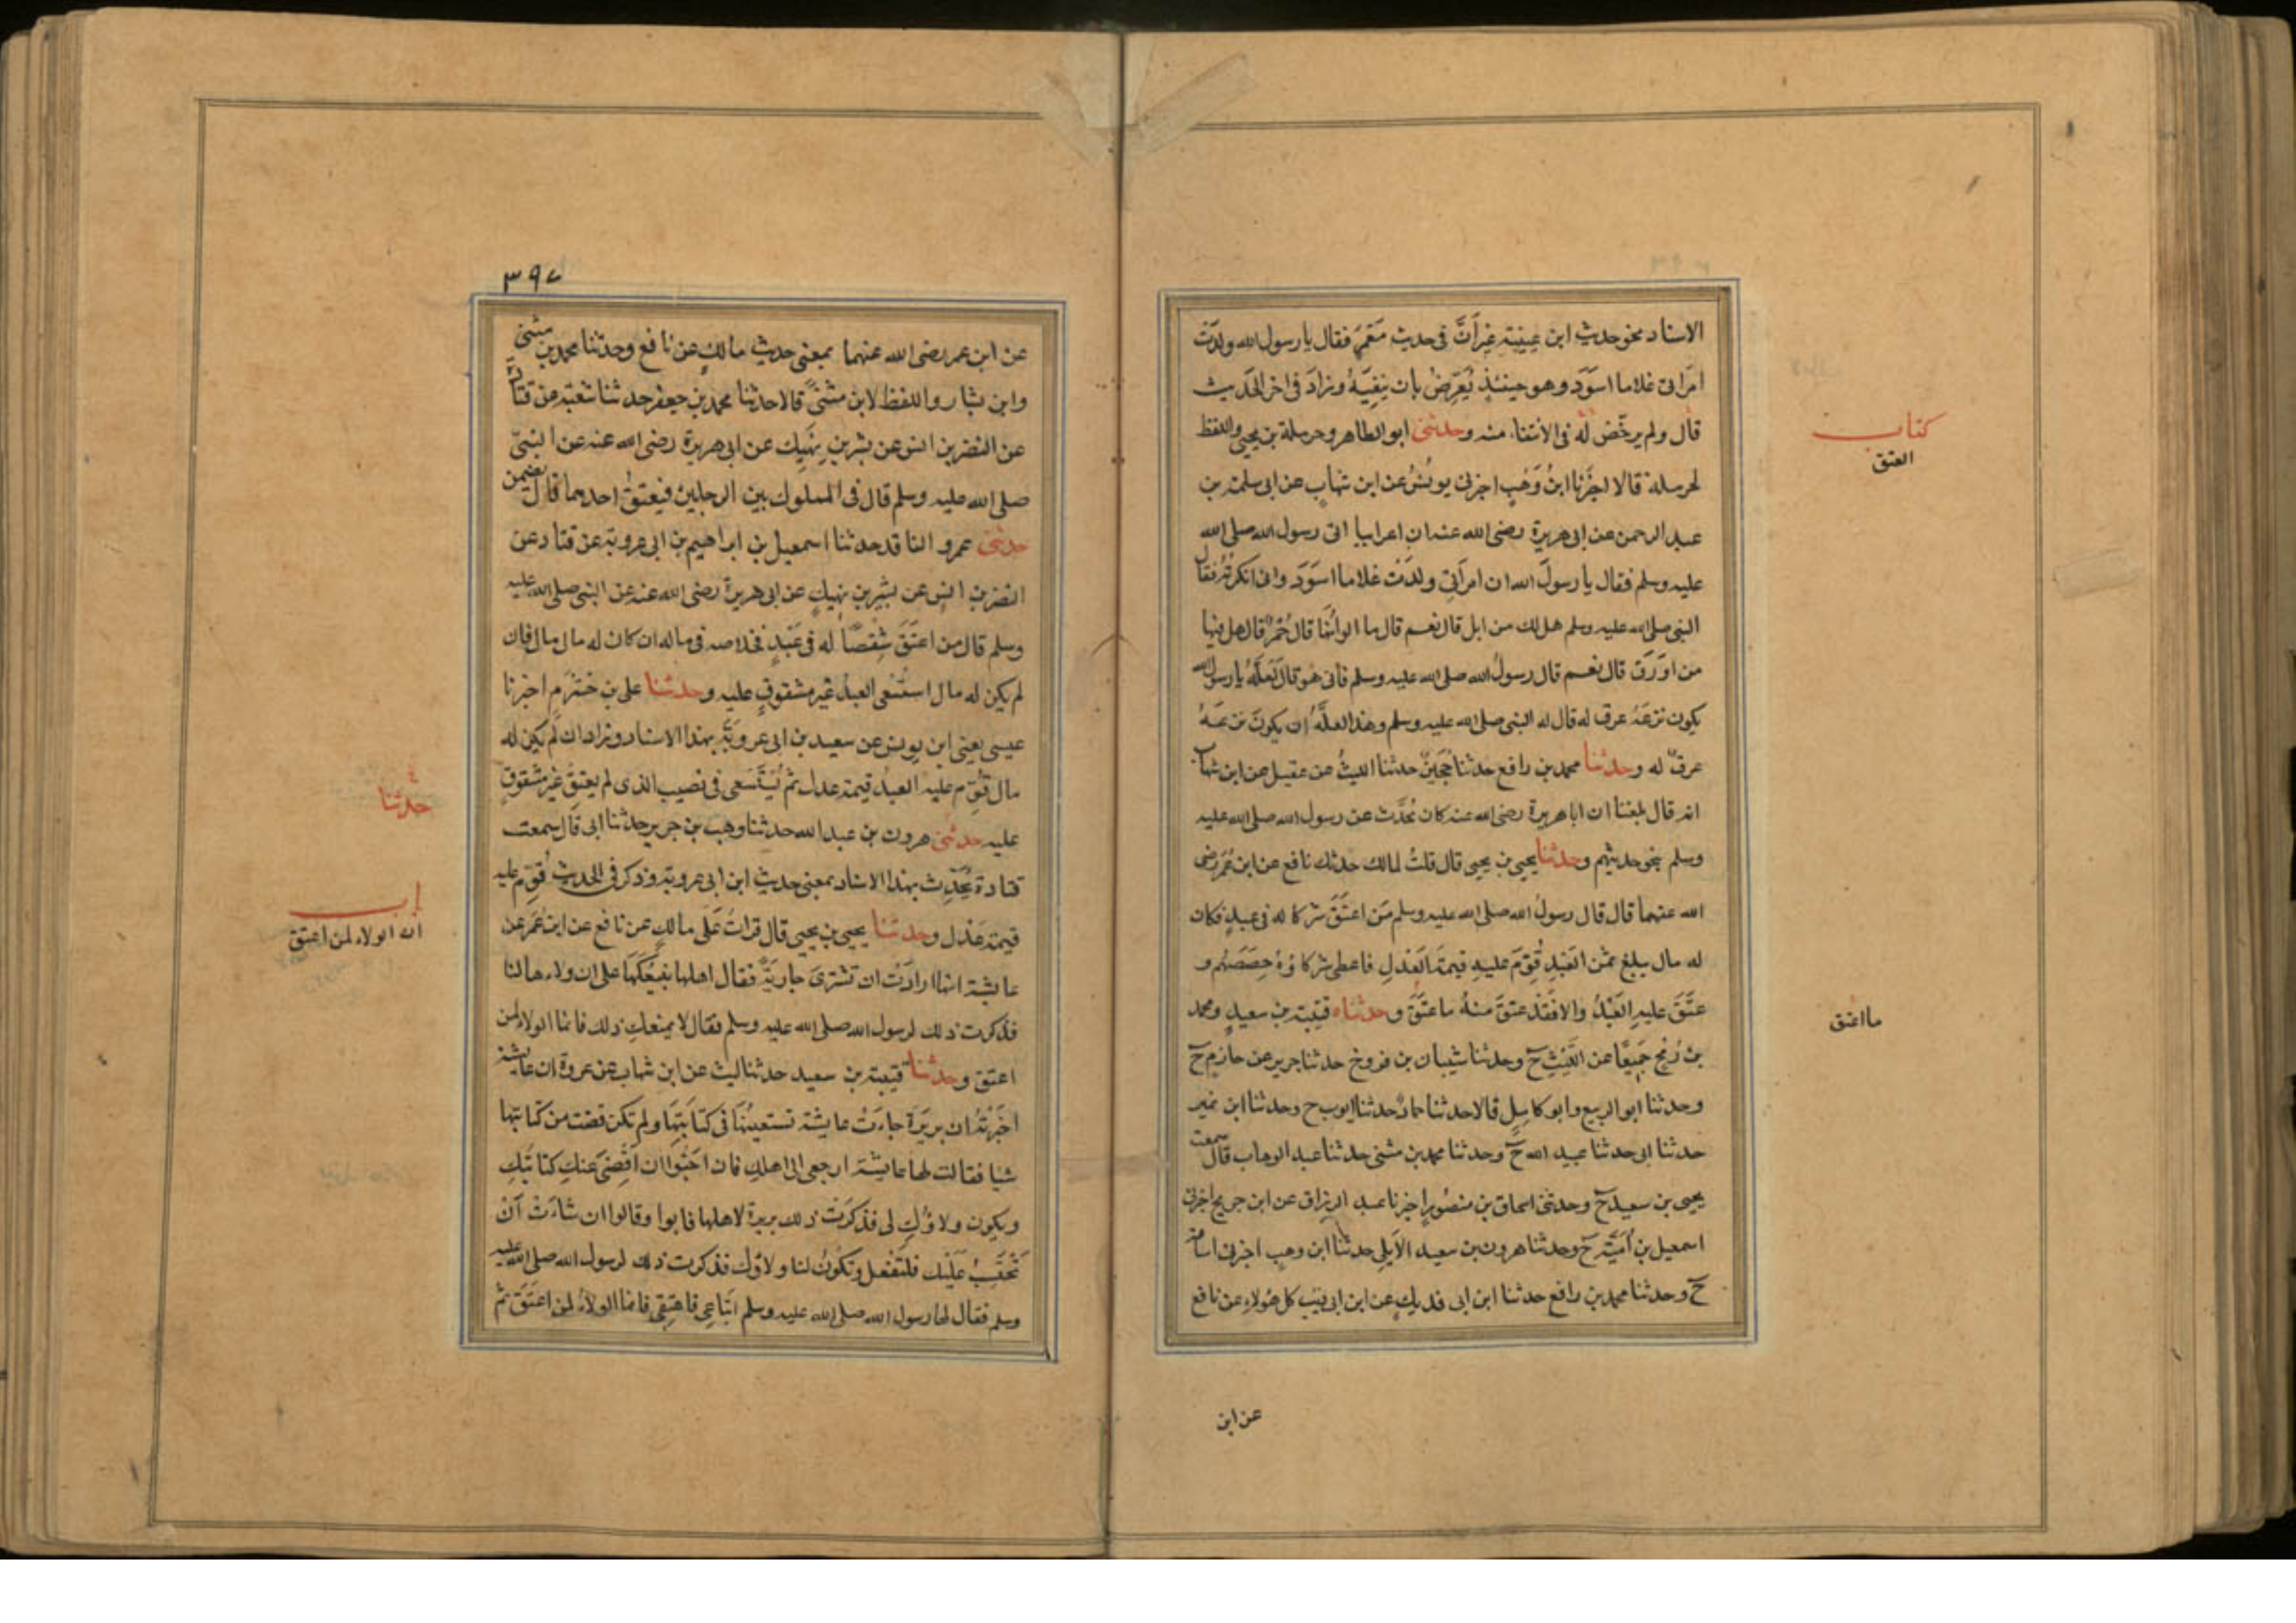 الاسناد نحو حديث ابن عيينة غير اَنَّ فى حديث مَعْمَرٍ فقال يا رسول الله ولدَتْ
امرَاتى غلاما اسوَدَ وهو حينئذٍ يُعَرِّضُ بان يَنْفِيَهُ وزادَ فى اخر الحَديث
قال ولم يرخّص لَه فى الانتفاء منه وحدثنى ابو الطاهر وحرملة بن يحيى واللفظ
لحرملة قالا اخبَرنا ابنُ وَهْبٍ اخبرنى يونُسُ عن ابن شهابٍ عن ابى سلمة بن
عبد الرحمن عن ابى هريرة رضى الله عنه ان اعرابيا اتى رسول الله صلى الله
عليه وسلم فقال يا رسولَ الله ان امرَاتى ولدَتْ غلاما اسوَدَ وانى انكرتُهُ فقال
النبى صلى الله عليه وسلم هل لك من ابل قال نعم قال ما الوانُها قال حُمْرٌ قال هل فيها
من اورَقَ قال نعم قال رسولُ الله صلى الله عليه وسلم فانى هُو قال لعَلَّهُ يا رسول الله
يكون نزعَهُ عرق له قال له النبى صلى الله عليه وسلم وهذا لعلَّهُ ان يكونَ نزعَهُ
عرقٌ له وحدثنا محمد بن رافع حدثنا حُجَينٌ حدثنا الليثُ عن عقيل عن ابن شهاب
انه قال بلغنا ان ابا هريرة رضى الله عنه كان يُحَدّث عن رسول الله صلى الله عليه
وسلم بنحو حديثهم وحدثنا يحيى بن يحيى قال قلتُ لمالك حدثك نافع عن ابن عُمَرَ رضى
الله عنهما قال قال رسولُ الله صلى الله عليه وسلم مَن اعتَقَ شركا له فى عبدٍ فكان
له مال يبلغ ثمْن العَبْدِ قُوِّمَ عليهِ قيمةَ العَدلِ فاعطى شركاؤهُ حِصَصَهُم و
عتَقَ عليهِ العَبْدُ والا فَقَدْ عتقَ منهُ ما عتَقَ وحدثناه قتيبة بن سعيدٍ ومحمد
بن رُمحٍ جَميعًا عن اللَّيْثِ ح وحدثنا شيبان بن فروخ حدثنا جرير عن حازم ح
وحدثنا ابو الربيع وابو كامِلٍ قالا حدثنا حمادٌ حدثنا ايوب ح وحدثنا ابن نمير
حدثنا ابى حدثنا عبيد الله ح وحدثنا محمد بن مثنى حدثنا عبد الوهاب قال سمعت
يحيى بن سعيد ح وحدثنى اسحاق بن منصُورٍ اخبرنا عبد الرزاق عن ابن جريج اخبرنى
اسمعيل بن اُميَّة ح وحدثنا هرون بن سعيد الاَيلى حدثنا ابن وهب اخبرنى اسامة
ح وحدثنا محمد بن رافع حدثنا ابن ابى فديكٍ عن ابن ابى ذيب كل هؤلاءِ عن نافع
كتاب
العتق
ما اعتق
عن ابن
٣٩٧
عن ابن عمر رضى الله عنهما بمعنى حديث مالكٍ عن نافع وحدثنا محمد بن مثنى
وابن بشار واللفظ لابن مثنىً قالا حدثنا محمد بن جعفر حدثنا شعبة عن قتادة
عن النضر بن انس عن بشير بن نهيك عن ابى هريرة رضى الله عنه عن النبىّ
صلى الله عليه وسلم قال فى المملوك بين الرجلين فيعتقُ احدهما قال يضمن
حدثنى عمرو الناقد حدثنا اسمعيل بن ابراهيم بن ابى عروبة عن قتاد عن
النضر بن انسٍ عن بشير بن نهيكٍ عن ابى هريرة رضى الله عنه عن النبى صلى الله عليه
وسلم قال من اعتَقَ شِقْصًا له فى عَبْدٍ فخلاصه فى ماله ان كان له مال مال فان
لم يكن له مال استُسْعى العبدُ غير مشقوقٍ عليه وحدثنا على بن خشرَم اخبرنا
عيسى يعنى ابن يونس عن سعيد بن ابى عروبَةَ بهذا الاسناد وزاد ان لم يكن له
مال قُوّم عليه العبدُ قيمة عدل ثم يُسْتَسعى فى نصيب الذى لم يعتقْ غير مشقوقٍ
عليه حدثنى هرون بن عبد الله حدثنا وهب بن جرير حدثنا ابى قال سمعت
قتادة يُحَدّث بهذا الاسناد بمعنى حديث ابن ابى عروبة وذكر فى الحديث قُوّم عليه
قيمة عَدْل وحدثنا يحيى بن يحيى قال قراتُ عَلَى مالكٍ عن نافع عن ابن عُمَرَ عن
عايشة انها ارادَتْ ان تشترىَ جاريَةً فقال اهلها نبيعُكَها على ان ولاءها لنا
فذكرت ذلك لرسول الله صلى الله عليه وسلم فقال لا يمنعكِ ذلك فانما الولاء لمن
اعتق وحدثنا قتيبة بن سعيد حدثنا ليث عن ابن شهاب عن عروة ان عايشة
اخبَرَتْهُ ان بريرَةَ جاءَتْ عايشة تستعينُها فى كتابَتِهَا ولم تكن قضت من كتابتها
شيا فقالت لها عايشَة ارجعى الى اهلكِ فان احَبُّوا ان اَقْضِىَ عنكِ كتابتَكِ
ويكون ولاؤُكِ لى فذكَرَتْ ذلك بريرة لاهلها فابوا وقالوا ان شاءَتْ اَنْ
تحتَسِبَ عَلَيْك فلتَفْعل وتكونُ لنا ولاؤك فذكرت ذلك لرسول الله صلى الله عليه
وسلم فقال لها رسول الله صلى الله عليه وسلم ابتاعِى فاعتِقِى فانما الولاءُ لمن اعتَقَ ثم
حدثنا
باب
ان الولاء لمن اعتق